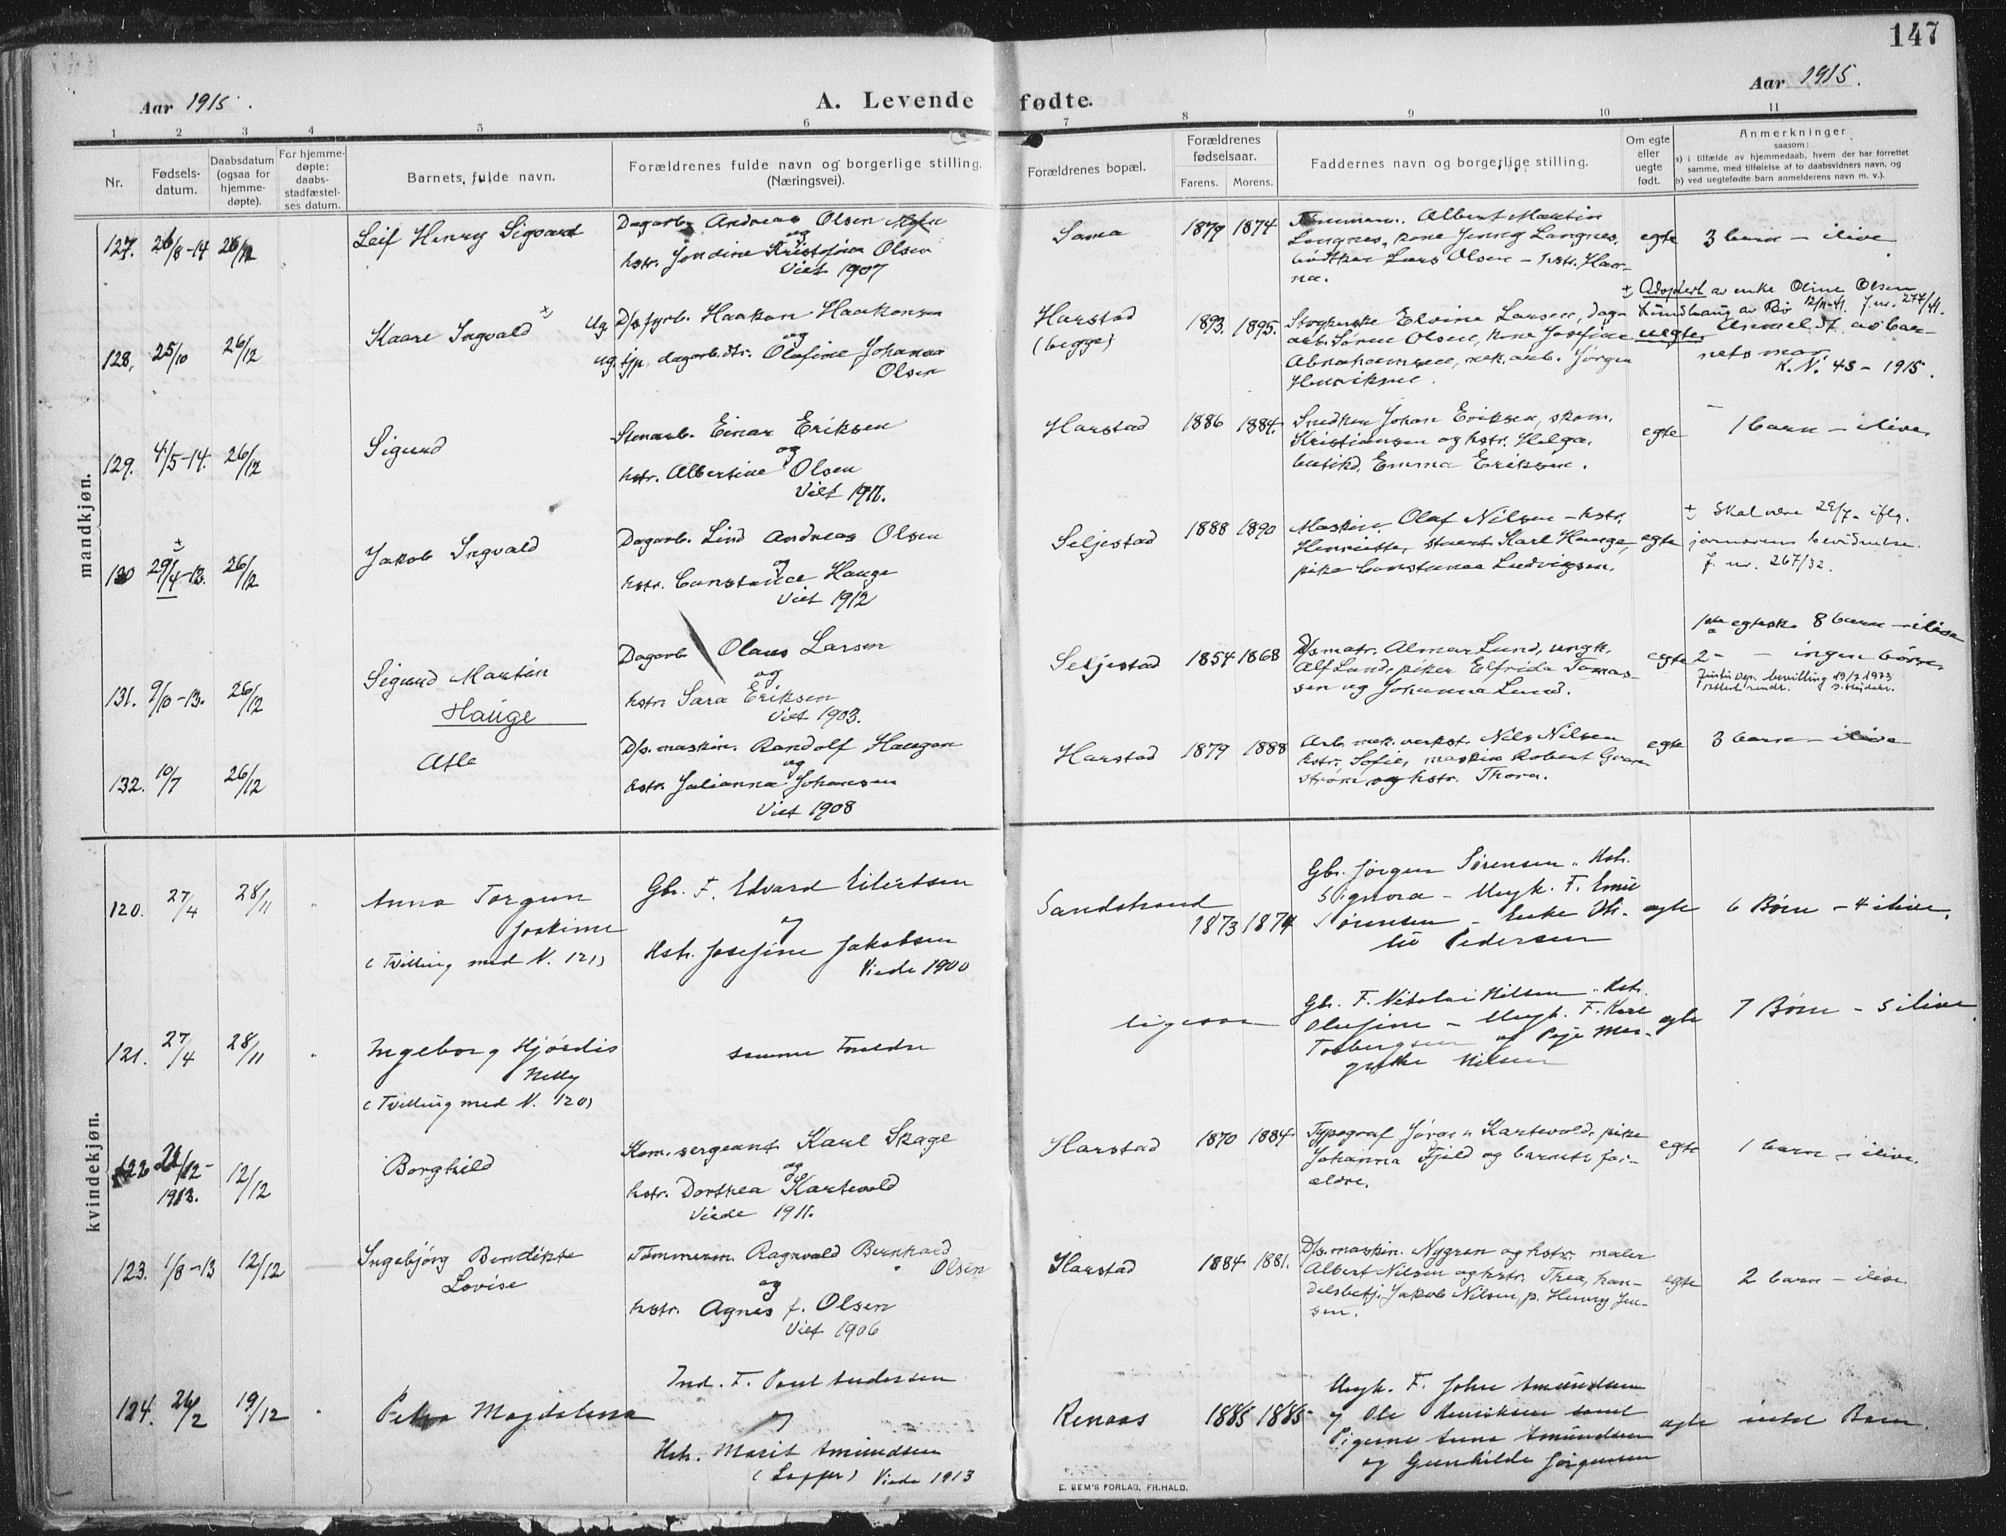 147
Aar 1915.
A. Levende fødte.
Aar 1915.
1 2 3 4 5 6 7 8 9 10 11
Nr.
Fødsels-
datum.
Daabsdatum
(ogsaa for
hjemme-
døpte).
For hjemme-
døpte:
daabs-
stadfæstel-
ses datum.
Barnets fulde navn.
Forældrenes fulde navn og borgerlige stilling.
(Næringsvei).
Forældrenes bopæl.
Forældrenes
fødselsaar.
Farens. Morens.
Faddernes navn og borgerlige stilling.
Om egte
eller
uegte
født.
Anmerkninger
saasom:
a) i tilfælde av hjemmedaab, hvem der har forrettet
samme, med tilføielse af to daabsvidners navn, og
b) ved uegtefødte barn anmelderens navn m. v.).
mandkjøn.
127. 26/8-14 26/12 Leif Henry Sigvard
Dagarb. Andreas Olsen
og
hstr. Jondine Kristofina Olsen
Viet 1907
Sama 1879 1874
Albert Martin
Langnes, kone Jenny Langnes,
Lars Olsen – hstr. Han-
na.
egte 3 barn – ilive
128. 25/10 26/12 Kaare Ingvald
Ug. D/s fyrb. Haakon Haakonsen
og
ug. tjp. dagarb.dtr. Olafine Johanna
Olsen
Harstad
(begge)
1893. 1895.
Elvine Larsen, dag-
arb. Søren Olsen, kone Josefine
Abrahamsen, mek. arb. Jørgen
Henriksen.
uegte
Adoptert av enke Oline Olsen
av Bø 12/11-41. J.nr. 277/41.
Anmeldt av bar-
nets mor.
K. N. 43 – 1915.
129. 4/5-14. 26/12 Sigurd
Stenarb. Einar Eriksen
og
hstr. Albertine Olsen
Viet 1911.
Harstad 1886 1884.
Snedker Johan Eriksen, skom.
Kristiansen og hstr. Helga,
butikd. Emma Eriksen.
egte 1 barn – ilive
130 29/4-13. 26/12 Jakob Ingvald
Dagarb. Lind Andreas Olsen
og
hstr. Constance Hauge
Viet 1912
Seljestad 1888 1890
Maskin. Olaf Nilsen – hstr.
Henriette, Karl Hauge,
pike Constanse Ludvigsen.
egte
Skal være 29/7- iflg.
jormorens bevidnelse.
J. nr. 267/32.
131. 9/10-13. 26/12 Sigurd Martin
Hauge
Dagarb. Olaus Larsen
og
hstr. Sara Eriksen
Viet 1903.
Seljestad 1854 1868
D/s matr. Almar Lund, ungk.
Alf Lund, piker Elfrida Tomas-
sen og Johanna Lund.
egte
1ste egtesk. 8 barn – ilive
2- – ingen børn
Justis Dep. bevilling 19/7 1973
132. 10/7 26/12 Atle
D/s. maskin. Randolf Haugan
og
hstr. Julianna Johansen
Viet 1908
Harstad 1879 1888
Arb. mek. verkst. Nils Nilsen
hstr. Sofie, maskin. Robert Gran-
strøm og hstr. Thora.
egte 3 barn – ilive
kvindekjøn.
120. 27/4 28/11 Anna Torgun
Joakime
(Tvilling med N. 121)
Gbr. F. Edvard Eilertsen
og
Hstr. Josefine Jakobsen
Viede 1900
Sandstrand
1873 1874
Gbr. Jørgen Sørensen, Hstr.
Signora – Ungk. F. Emil
Sørensen – Enke Oti-
lie Pedersen
egte 6 Børn – 4 ilive.
121. 27/4 28/11 Ingeborg Hjørdis
Nelly
(Tvilling med N. 120)
samme Foreldre
ligesaa
Gbr. F. Nikolai Nilsen, Hstr.
Olufine – Ungk. F. Karl
Torbergsen og Pige Mar-
grethe Nilsen
egte 7 Børn – 5 ilive.
122 21/12-
1913. 12/12 Borghild
Kom. sergeant Karl Skage
og
hstr. Dorthea Kartevold
Viede 1911.
Harstad 1870 1884
Typograf Jørgen Kartevold, pike
Johanna Fjeld og barnets for-
ældre.
egte 1 barn – ilive.
123. 1/8-13 12/12 Ingebjørg Bendikte
Lovise
Tømmerm. Ragnvald Bernhard
Olsen
og
hstr. Agnes f. Olsen
Viet 1906
Harstad 1884 1881.
D/s. maskin. Nygren og hstr. maler
Albert Nilsen og hstr. Thea, han-
delsbetj. Jakob Nilsen, p. Henny Jen-
sen.
egte 2 barn – ilive.
124. 26/2 19/12 Petra Magdalena
Ind. F. Paul Andersen
og
Hstr. Marit Amundsen
(Lapper) Viede 1913
Renaas 1885 1885
Ungk. F. Johan Amundsen
og Ole Henriksen samt
Pigerne Anna Amundsen
og Gunhilde Jørgensen
egte intet Barn
E. SEM'S FORLAG, FR.HALD.